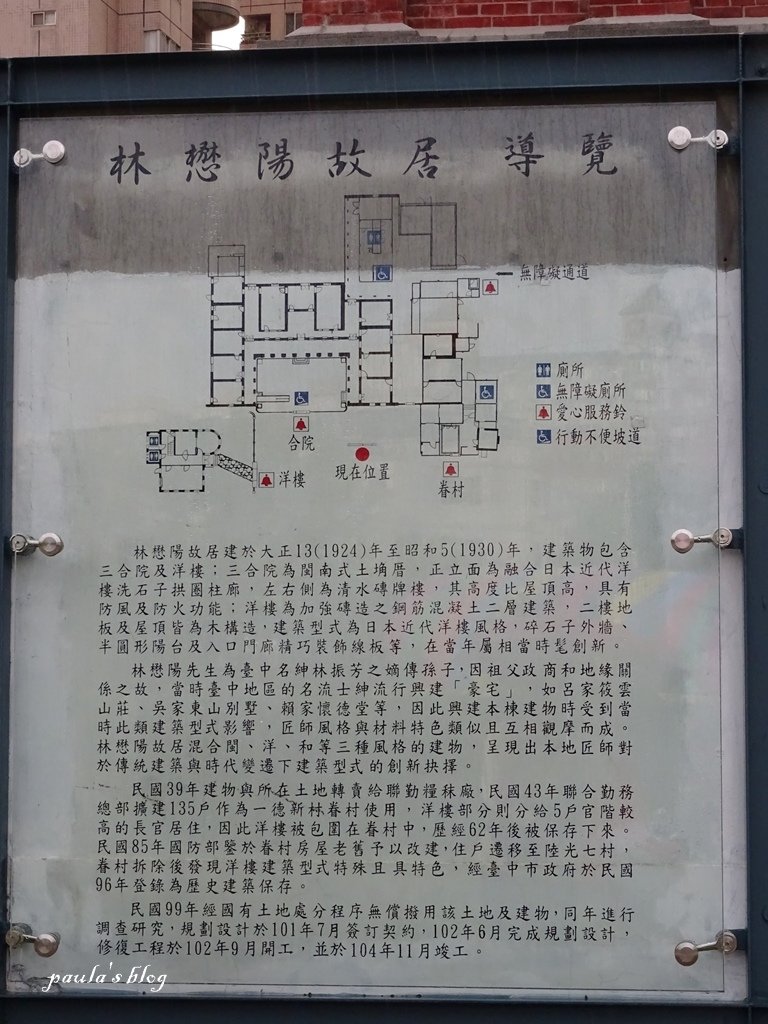 林懋陽故居導覽
無障礙通道
廁所
無障礙廁所
愛心服務鈴
行動不便坡道
合院
現在位置
洋樓
眷村
林懋陽故居建於大正13(1924)年至昭和5(1930)年，建築物包含
三合院及洋樓；三合院為閩南式土埆厝，正立面為融合日本近代洋
樓洗石子拱圈柱廊，左右側為清水磚牌樓，其高度比屋頂高，具有
防風及防火功能；洋樓為加強磚造之鋼筋混凝土二層建築，二樓地
板及屋頂皆為木構造，建築型式為日本近代洋樓風格，碎石子外牆、
半圓形陽台及入口門廊精巧裝飾線板等，在當年屬相當時髦創新。
林懋陽先生為臺中名紳林振芳之嫡傳孫子，因祖父政商和地緣關
係之故，當時臺中地區的名流士紳流行興建「豪宅」，如呂家筱雲
山莊、吳家東山別墅、賴家懷德堂等，因此興建本棟建物時受到當
時此類建築型式影響，匠師風格與材料特色類似且互相觀摩而成。
林懋陽故居混合閩、洋、和等三種風格的建物，呈現出本地匠師對
於傳統建築與時代變遷下建築型式的創新抉擇。
民國39年建物與所在土地轉賣給聯勤糧秣廠，民國43年聯合勤務
總部擴建135戶作為一德新村眷村使用，洋樓部分則分給5戶官階較
高的長官居住，因此洋樓被包圍在眷村中，歷經62年後被保存下來。
民國85年國防部鑒於眷村房屋老舊予以改建，住戶遷移至陸光七村，
眷村拆除後發現洋樓建築型式特殊且具特色，經臺中市政府於民國
96年登錄為歷史建築保存。
民國99年經國有土地處分程序無償撥用該土地及建物，同年進行
調查研究，規劃設計於101年7月簽訂契約，102年6月完成規劃設計，
修復工程於102年9月開工，並於104年11月竣工。
paula's blog